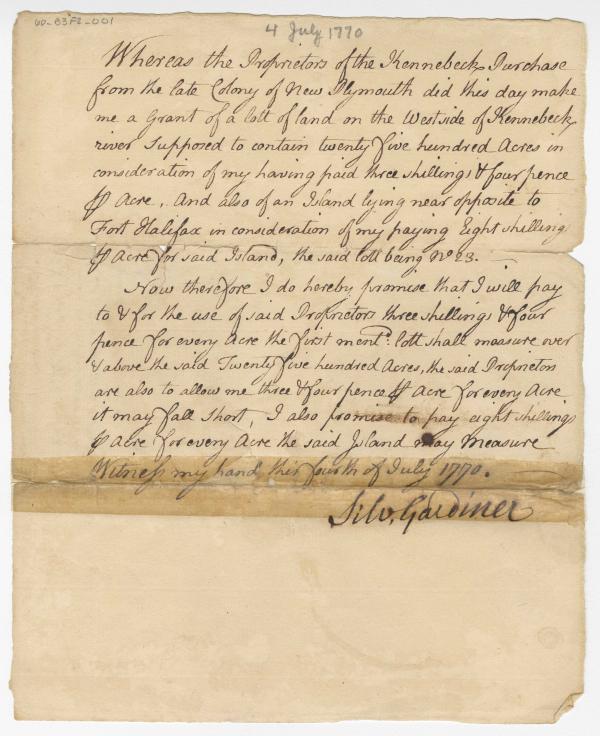 60-B3F2-001
4 July 1770
Whereas the Proprietors of the Kennebeck Purchase
from the late Colony of New Plymouth did this day make
me a Grant of a lott of land on the Westside of Kennebeck
river Supposed to contain twenty five hundred Acres in
consideration of my having paid three shillings & four pence
⅌ Acre, And also of an Island lying near opposite to
Fort Halifax in consideration of my paying Eight shilling
⅌ Acre for said Island, the said lott being No 23. –
Now therefore I do hereby promise that I will pay
to & for the use of said Proprietors three shillings & four
pence for every Acre the first mentd: lott shall measure over
& above the said Twenty five hundred Acres, the said Proprietors
are also to allow me three & four pence ⅌ Acre for every Acre
it may fall short, I also promise to pay eight shillings
⅌ Acre for every Acre the said Island may Measure
Witness my hand this fourth of July 1770.
Silv. Gardiner